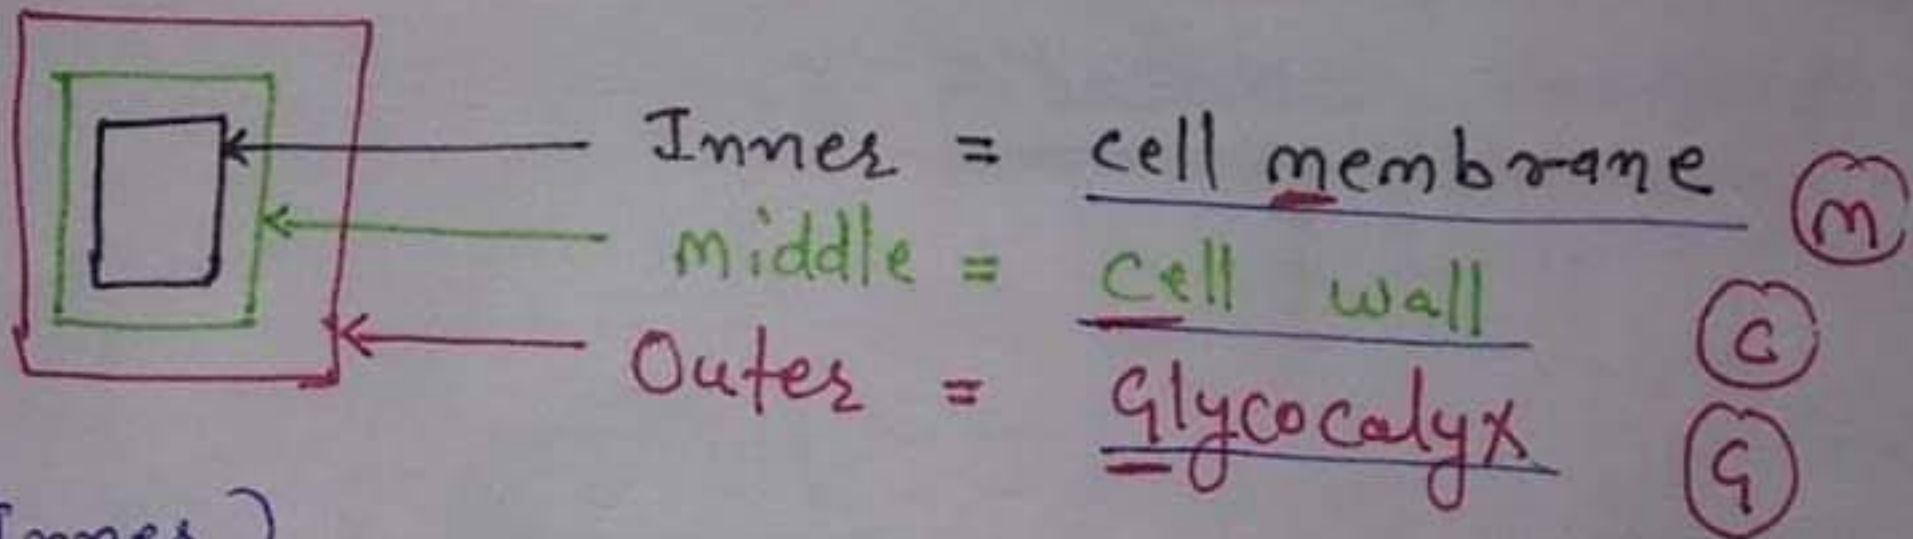 Inner = cell membrane (M)
Middle = Cell wall (C)
Outer = Glycocalyx (G)
Inner)